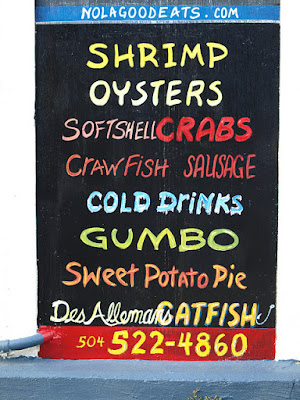 NOLAGOODEATS.COM
SHRIMP
OYSTERS
SOFTSHELL CRABS
CRAWFISH SAUSAGE
COLD DRINKS
GUMBO
SWEET POTATO PIE
Des Allemans CATFISH
504 522-4860